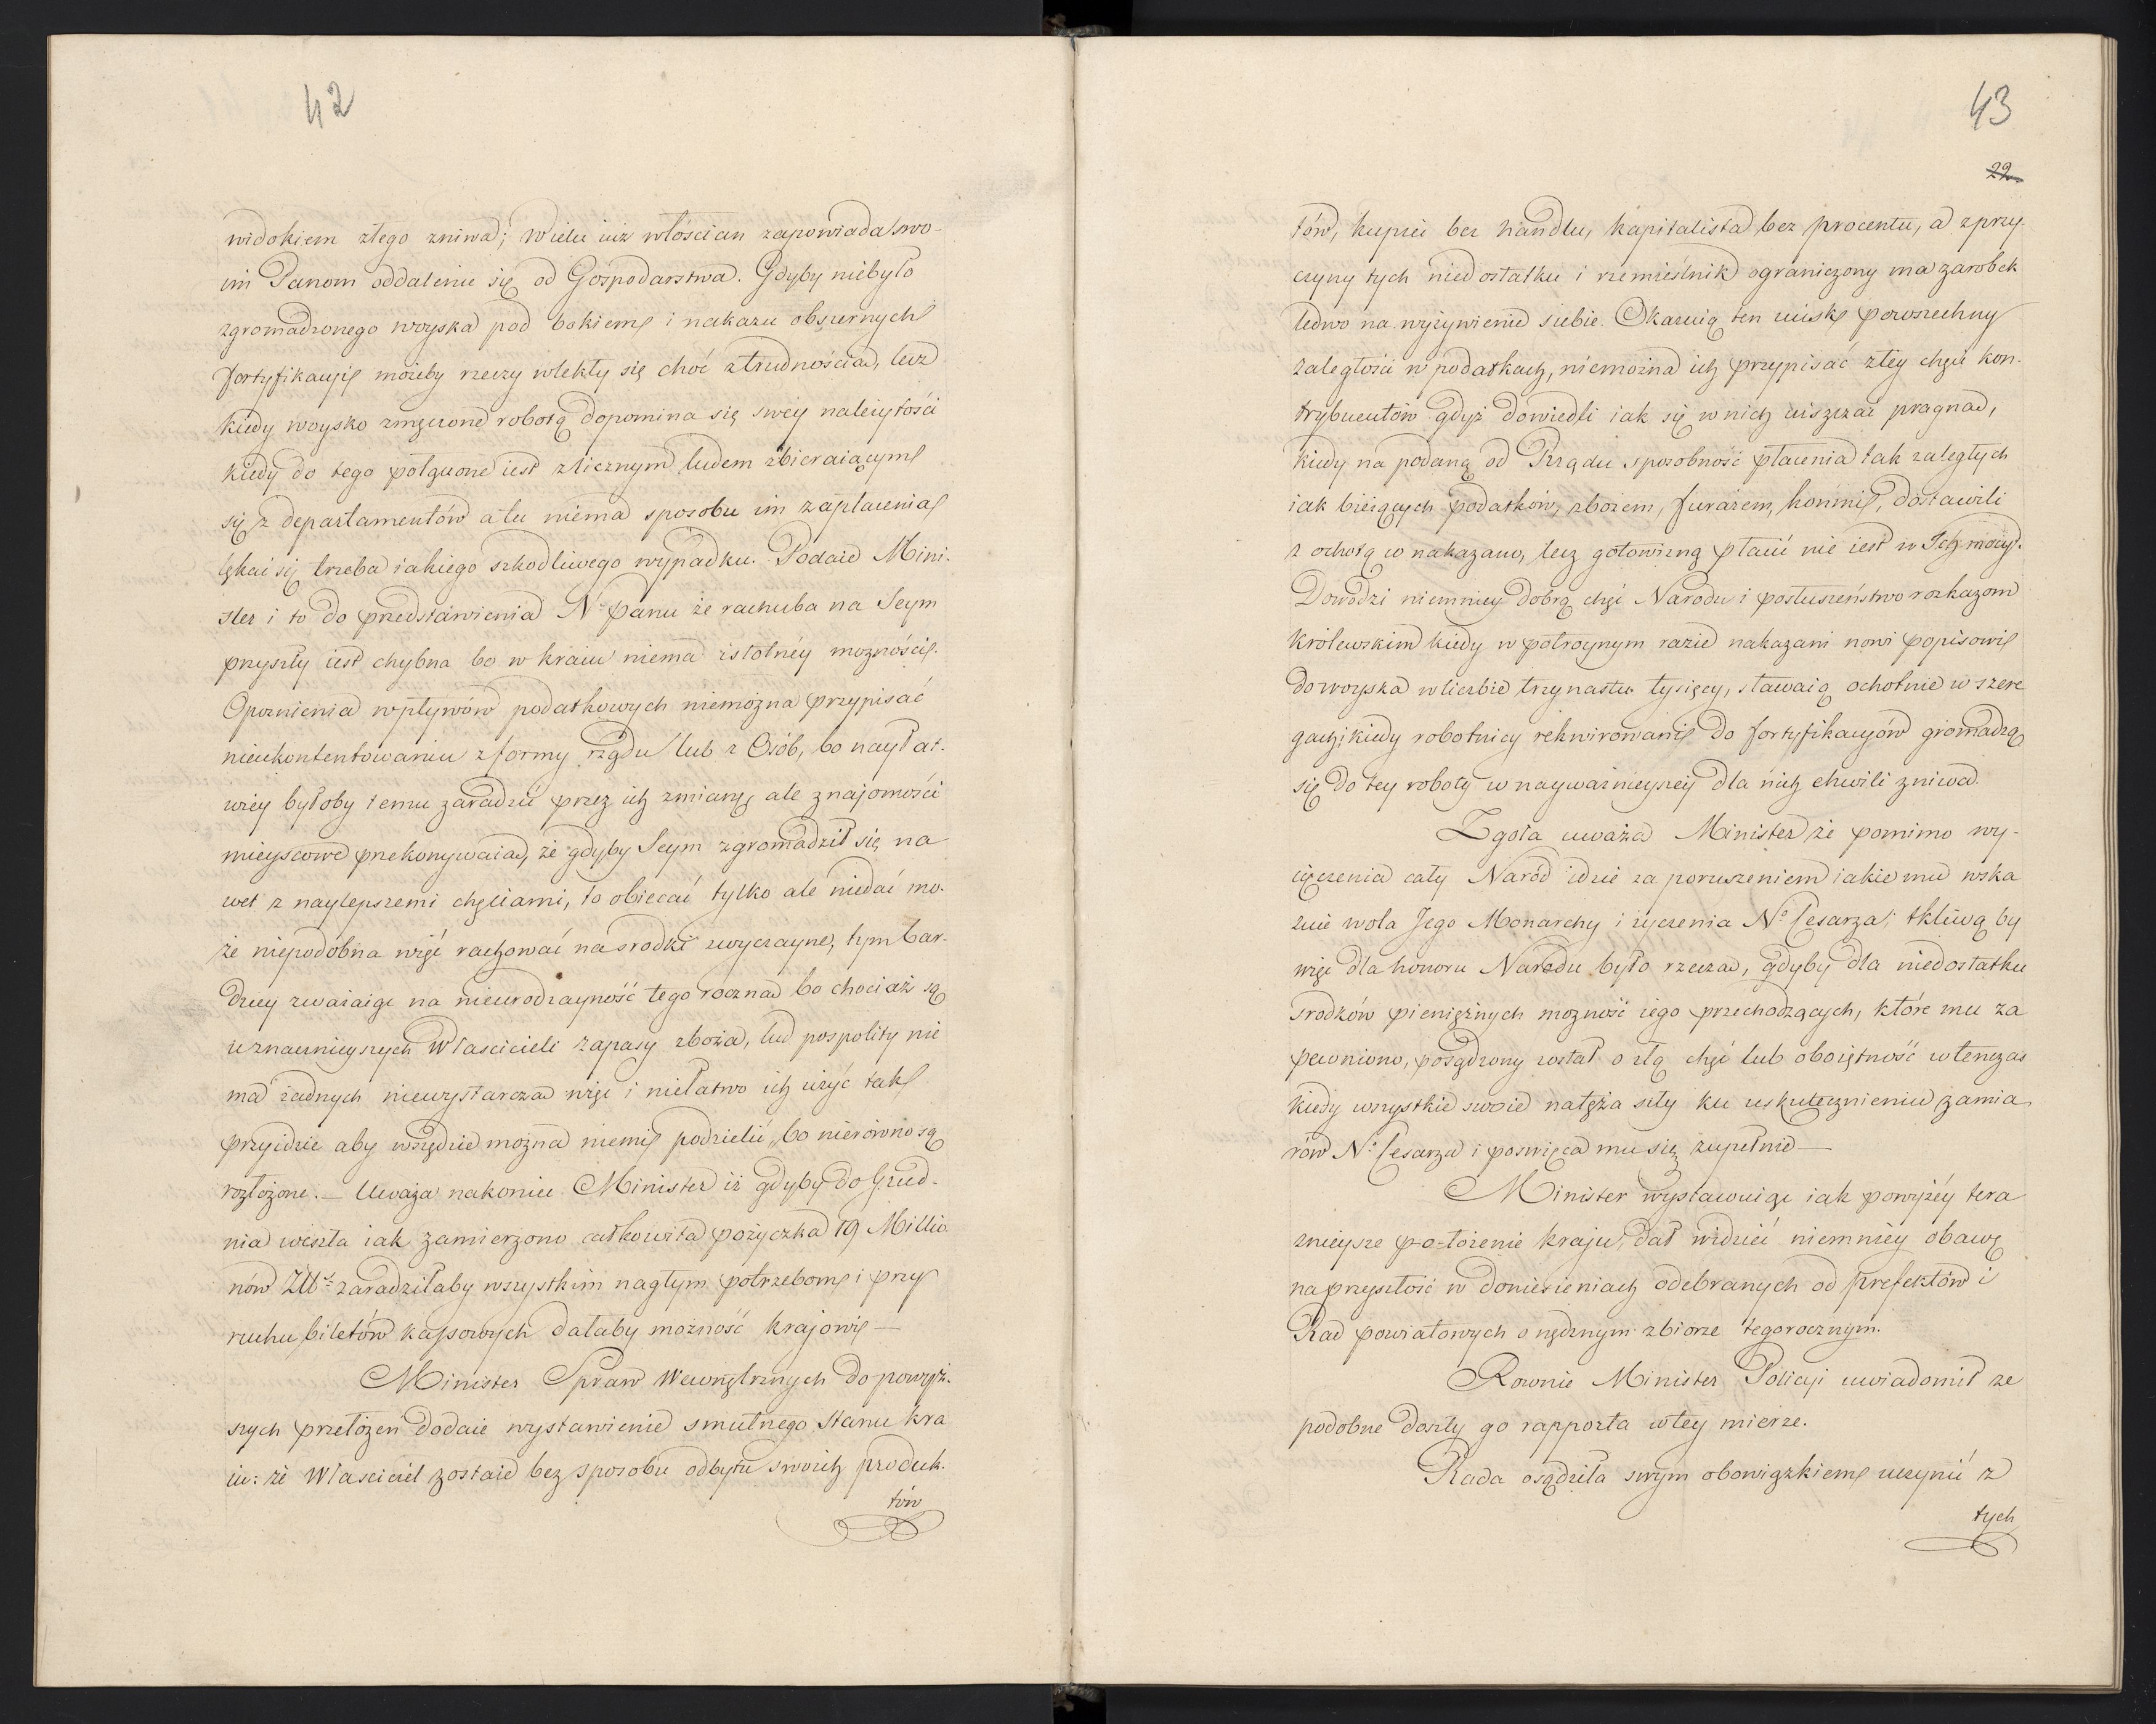 42
widokiem złego zniwa; Wielu iuż włóscian zapowiada swo-
im Panom oddalenie się od Gospodarstwa. Gdyby niebyło
zgromadzonego woyska pod bokiem i nakazu obszernych
fortyfikacyi możeby rzeczy wlekły się choć z trudnościa, lecz
kiedy woysko zmęczone robotą dopomina się swéy należytości
kiedy do tego połączone iest z licznym ludem zbieraiącym
się z departamentów a tu niema sposobu im zapłacenia
lękać się trzeba iakiego szkodliwego wypadku. Podaie Mini-
ster i to do przedstawienia N. Panu że rachuba na Seym
przyszły iest chybna bo w kraiu niema istotnéy możności.
Opoznienia wpływów podatkowych niemożna przypisać
nieukontentowaniu z formy rządu lub z Osób, bo nayłat-
wiéy byłoby temu zaradzić przez ich zmianę ale znajomości
mieyscowe przekonywaią, że gdyby Seym zgromadził się na
wet z naylepszemi chęciami, to obiecać tylko ale niedać mo-
że niepodobna więc rachować na srodki zwyczayne, tym bar-
dziey zważaiąc na nieurodzayność tegoroczna bo chociaż są
u znacznieyszych Własciciéli zapasy zboża, lud pospolity nie
ma żadnych niewystarcza więc i niełatwo ich użyć tak
przyidzie aby wszędzie można niemi podzielić, bo nierówno są
rozłożone. — Uważa nakoniec Minister iż gdyby do Grud-
nia weszła iak zamierzono całkowita pożyczka 19 Millio
nów Złt. zaradziłaby wszystkim nagłym potrzebom i przy
ruchu biletów kassowych dałaby możność krajowi —
Minister Spraw Wewnętrznych do powyż-
szych przełożeń dodaie wystawienie smutnego Stanu kra
iu: że Własciciel zostaie bez sposobu odbytu swoich produk-
tów
43
22
tów, kupiec bez handlu, kapitalista bez procentu, a z przy-
czyny tych niedostatku i rzemieślnik ograniczony ma zarobek
ledwo na wyżywienie siebie. Okazuią ten ucisk powszechny
zaległości w podatkach, niemożna ich przypisać złey chęci kon-
trybuentów gdyż dowiedli iak się w nich uiszczać pragna,
kiedy na podaną od Rządu sposobność płacenia tak zaległych
iak bieżących podatków, zbożem, furażem, końmi, dostawili
z ochotą co nakazano, lecz gotowizną płacić nie iest w Ich mocy.
Dowodzi niemniey dobrą chęć Narodu i posłuszeństwo rozkazom
królewskim kiedy w potroynym razie nakazani nowi popisowi
do woyska w liczbie trzynastu tysięcy, stawaią ochotnie w szere
gach; kiedy robotnicy rekwirowani do fortyfikacyów gromadzą
się do tey roboty w nayważnieyszéy dla nich chwili zniwa.
Zgoła uważa Minister że pomimo wy-
cięczenia cały Naród idzie za poruszeniem iakie mu wska
zuie wola Jego Monarchy i życzenia N. Cesarza; tkliwą by
więc dla honoru Narodu było rzecza, gdyby dla niedostatku
srodków pieniężnych możność iego przechodzących, które mu za
pewniono, posądzony został o złą chęć lub oboiętność wtenczas
kiedy wszystkie swoie natęża siły ku uskutecznieniu zamia
rów N. Cesarza i poswięca mu się zupełnie —
Minister wystawuiąc iak powyżéy tera
znieysze po-łożenie kraju, dał widzieć niemniéy obawę
na przyszłość w doniesieniach odebranych od prefektów i
Rad powiatowych o nędznym zbiorze tegorocznym.
Rownie Minister Policyi uwiadomił ze
podobne doszły go rapporta w tey mierze.
Rada osądziła swym obowiązkiem uczynić z
tych